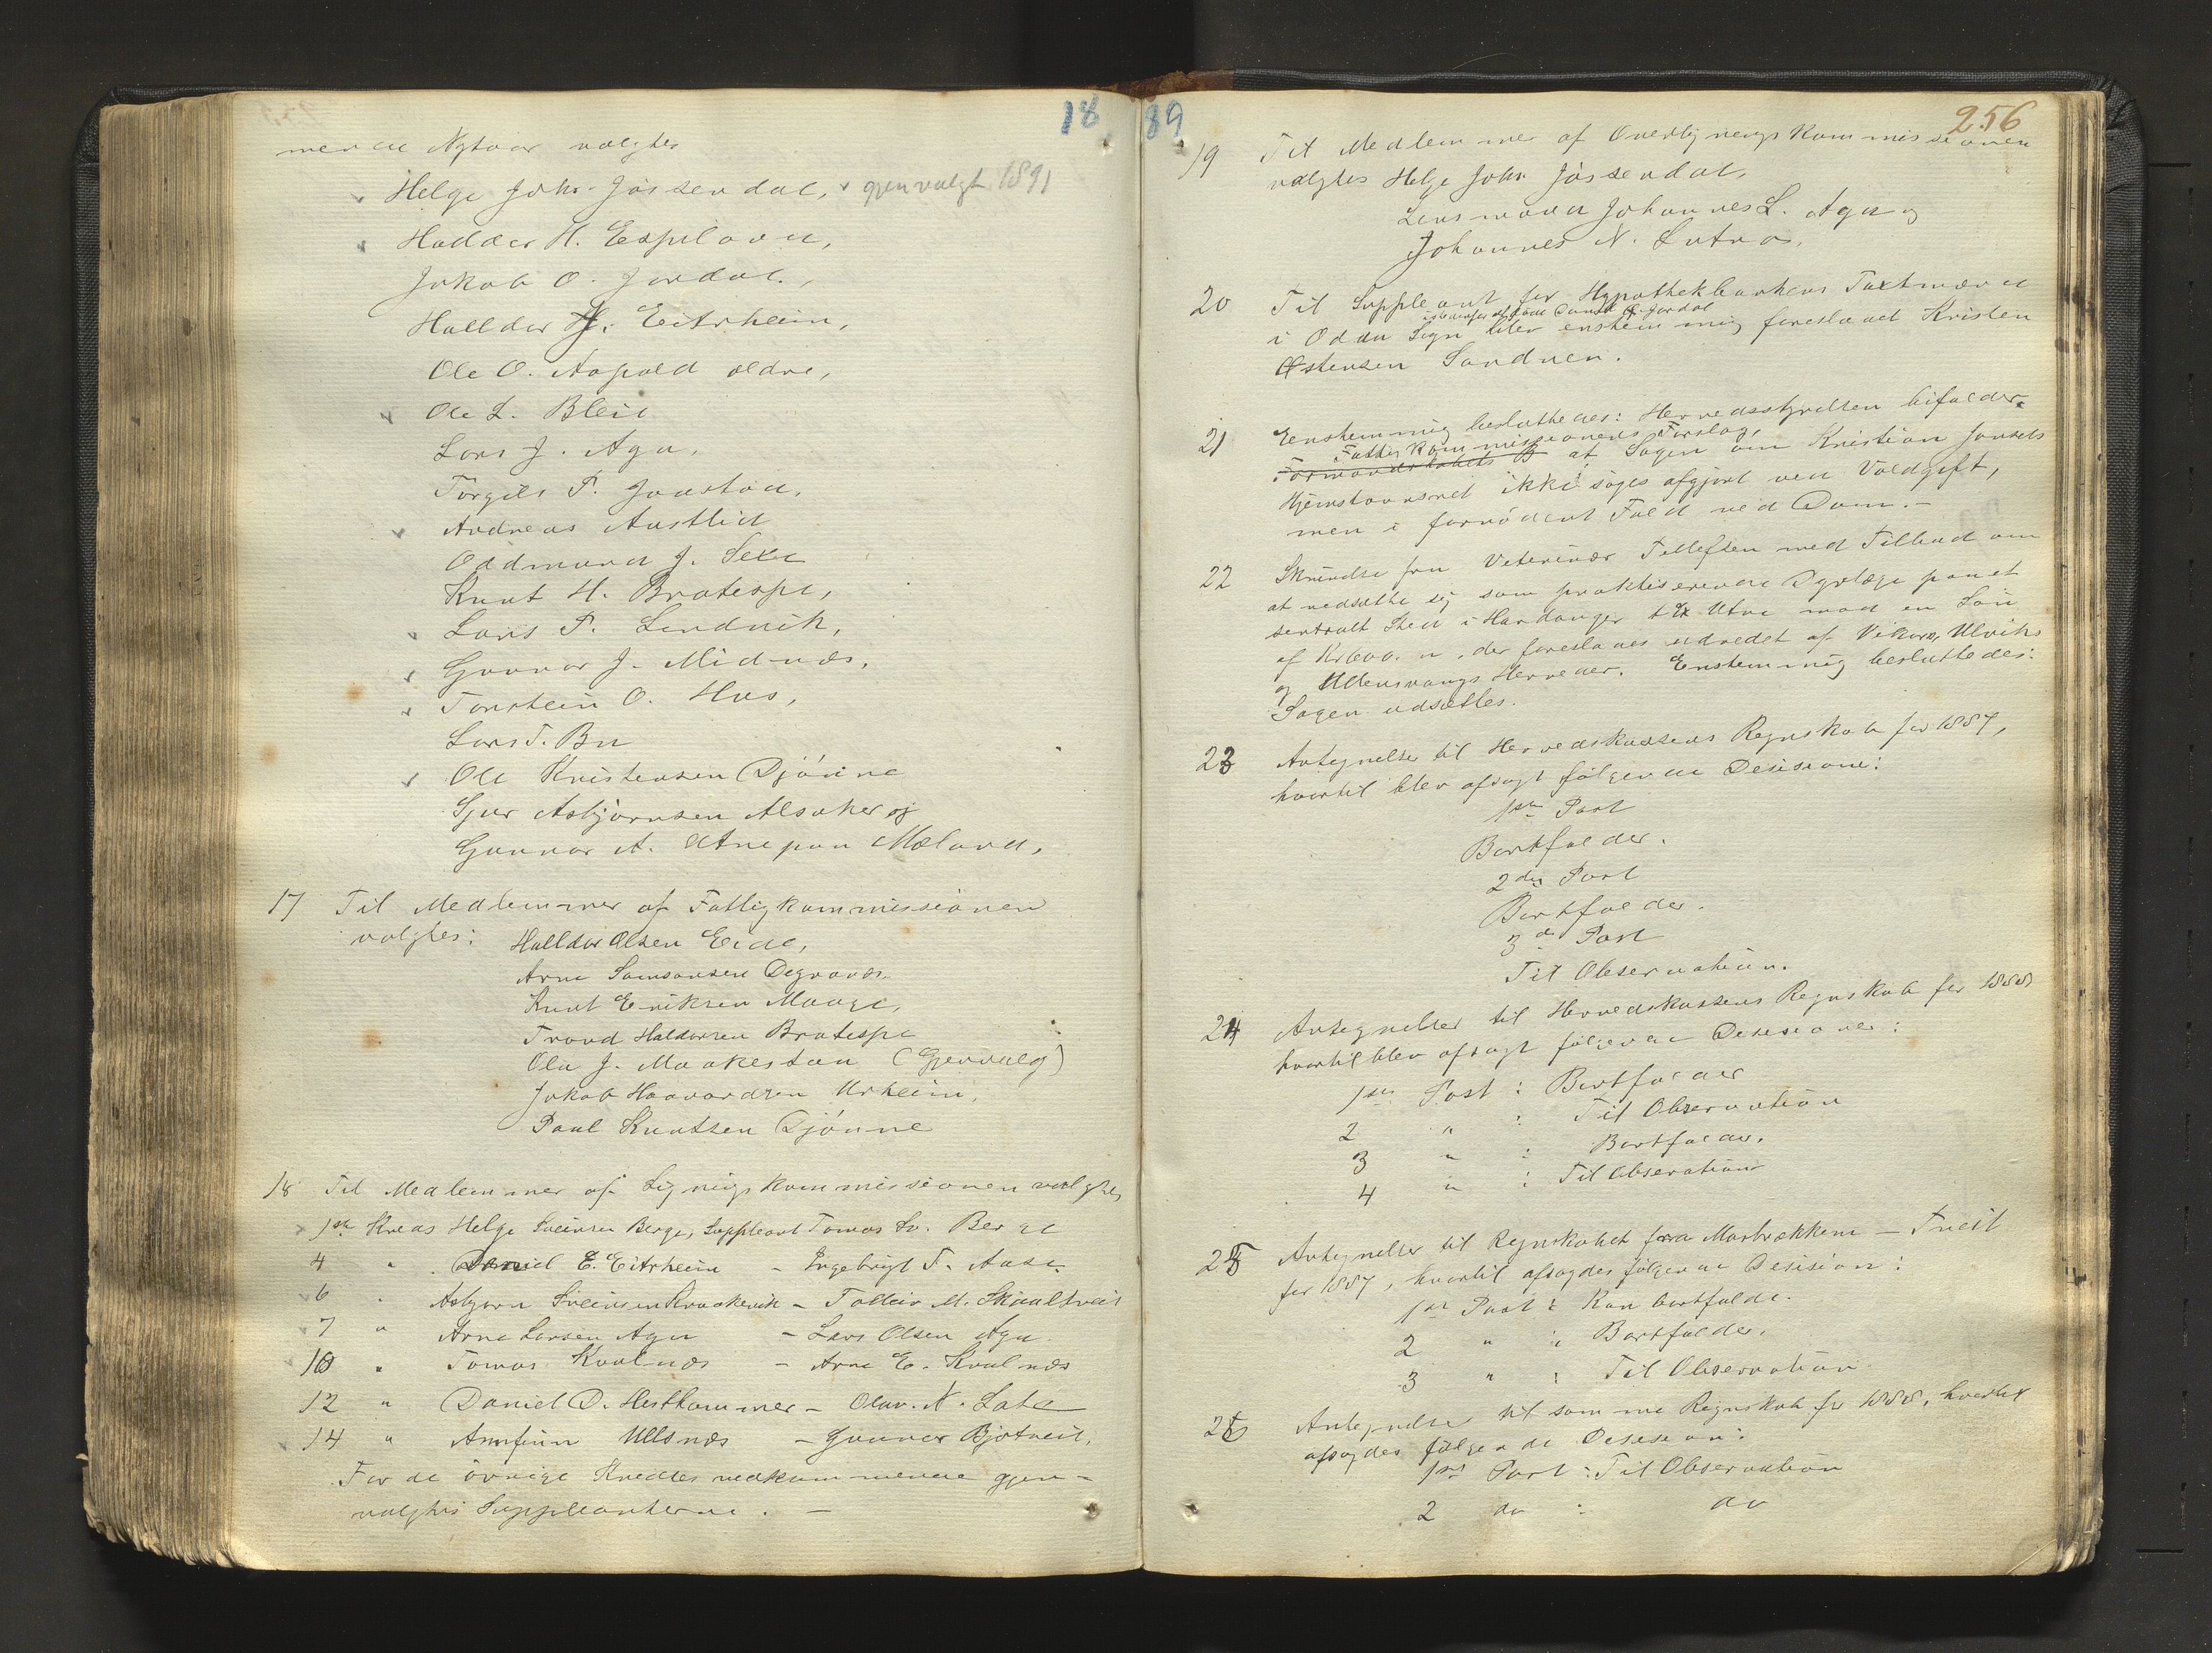 18
mende Nytaar valgtes
Helge Johs. Jøssendal, gjenvalgt 1891
Haldor H. Espeland,
Jakob O. Jordal,
Halldor H. Eitrheim,
Ole O. Aapald ældre,
Ole L. Bleie
Lars J. Aga,
Torgils P. Jaastad,
Andreas Austlid
Oddmund J. Sexe
Knut H. Bratespe,
Lars P. Lindvik,
Gunnar J. Midnæs,
Torstein O. Hus,
Lars T. Bu
Ole Kristensen Djønne
Sjur Asbjørnsen Alsaker og
Gunnar A. Atnepaa Mæland,
17 Til Medlemmer af Fattigkommissionen
valgtes: Halldor Olsen Eide,
Arne Samsonsen Degranæs
Knut Eriksen Maage,
Trond Haldorsen Bratespe
Ola J. Maakestad (Gjenvalg)
Jakob Haavardsen Urheim,
Paul Knutsen Djønne
18 Til Medlemmer af Ligningskommissionen valgtes
1ste Kreds Helge Sveinsen Berge, Suppleant Tomas Sv. Berge
4 " Daniel E. Eitrheim - Ingebrigt T. Aase
6 " Asbjørn Sveinsen - Tolleiv M. Skjaltveit
7 " Arne Larsen Aga - Lars Olsen Aga
10 " Tomas Kvalnæs - Arne E. Kvalnæs
12 " Daniel D. Hesthammer - Olav N. Lote
14 " Arnfinn Ullsnæs - Gunnar Bjotveit,
For de øvrige Kredses vedkommende gjen-
valgtes Suppleanterne. -
89
256
19 Til Medlemmer af Overligningskommissionen
valgtes Helge Johs Jøssendal,
Lensmand Johannes L. Aga og
Johannes N. Lutro.
20 Til Suppleant for Hypothekbankens Taxtmænd
istedenfor afdøde Amund O. Jordal
i Odda Sogn blev enstemmig foreslaaet Kristen
Østensen Sandven.
21 Enstemmig besluttedes: Herredsstyrelsen bifalder
Fattigkommissionens Forslag,
Formandskabets B at Sagen om Kristian Jonsens
Hjemstavnsret ikke søges afgjort ved Voldgift,
men i fornødent Fald ved Dom. -
22 Skrivelse fra Veterinær Tellefsen med Tilbud om
at nedsætte sig som praktiserende Dyrlæge paa et
sentralt Sted i Hardanger t Ex Utne mod en Løn
af Kr 600. n, der foreslaaes udredet af Vikørs, Ulviks
og Ullensvangs Herreder. Enstemmig besluttedes:
Sagen udsættes.
23 Antegnelser til Herredskassens Regnskab for 1887,
hvortil blev afsagt følgende Desisione:
1ste Post
Bortfalder.
2den Post
Bortfalder.
3die Post
Til Observation.
24 Antegnelser til Herredskassens Regnskab for 1888
hvortil blev afsagt følgende Desisioner:
1ste Post: Bortfalder
2 " : Til Observation
3 " : Bortfalder.
4 " : Til Observation
25 Antegnelser til Regnskabet fra Morbrækkene - Tveit
for 1887, hvortil afsagdes følgende Desision:
1ste Post: Kan bortfalde.
2 " : Bortfalder.
3 " : Til Observation
26 Antegnelser til samme Regnskab for 1888, hvortil
afsagdes følgende Desision:
1ste Post: Til Observation
2 do : do